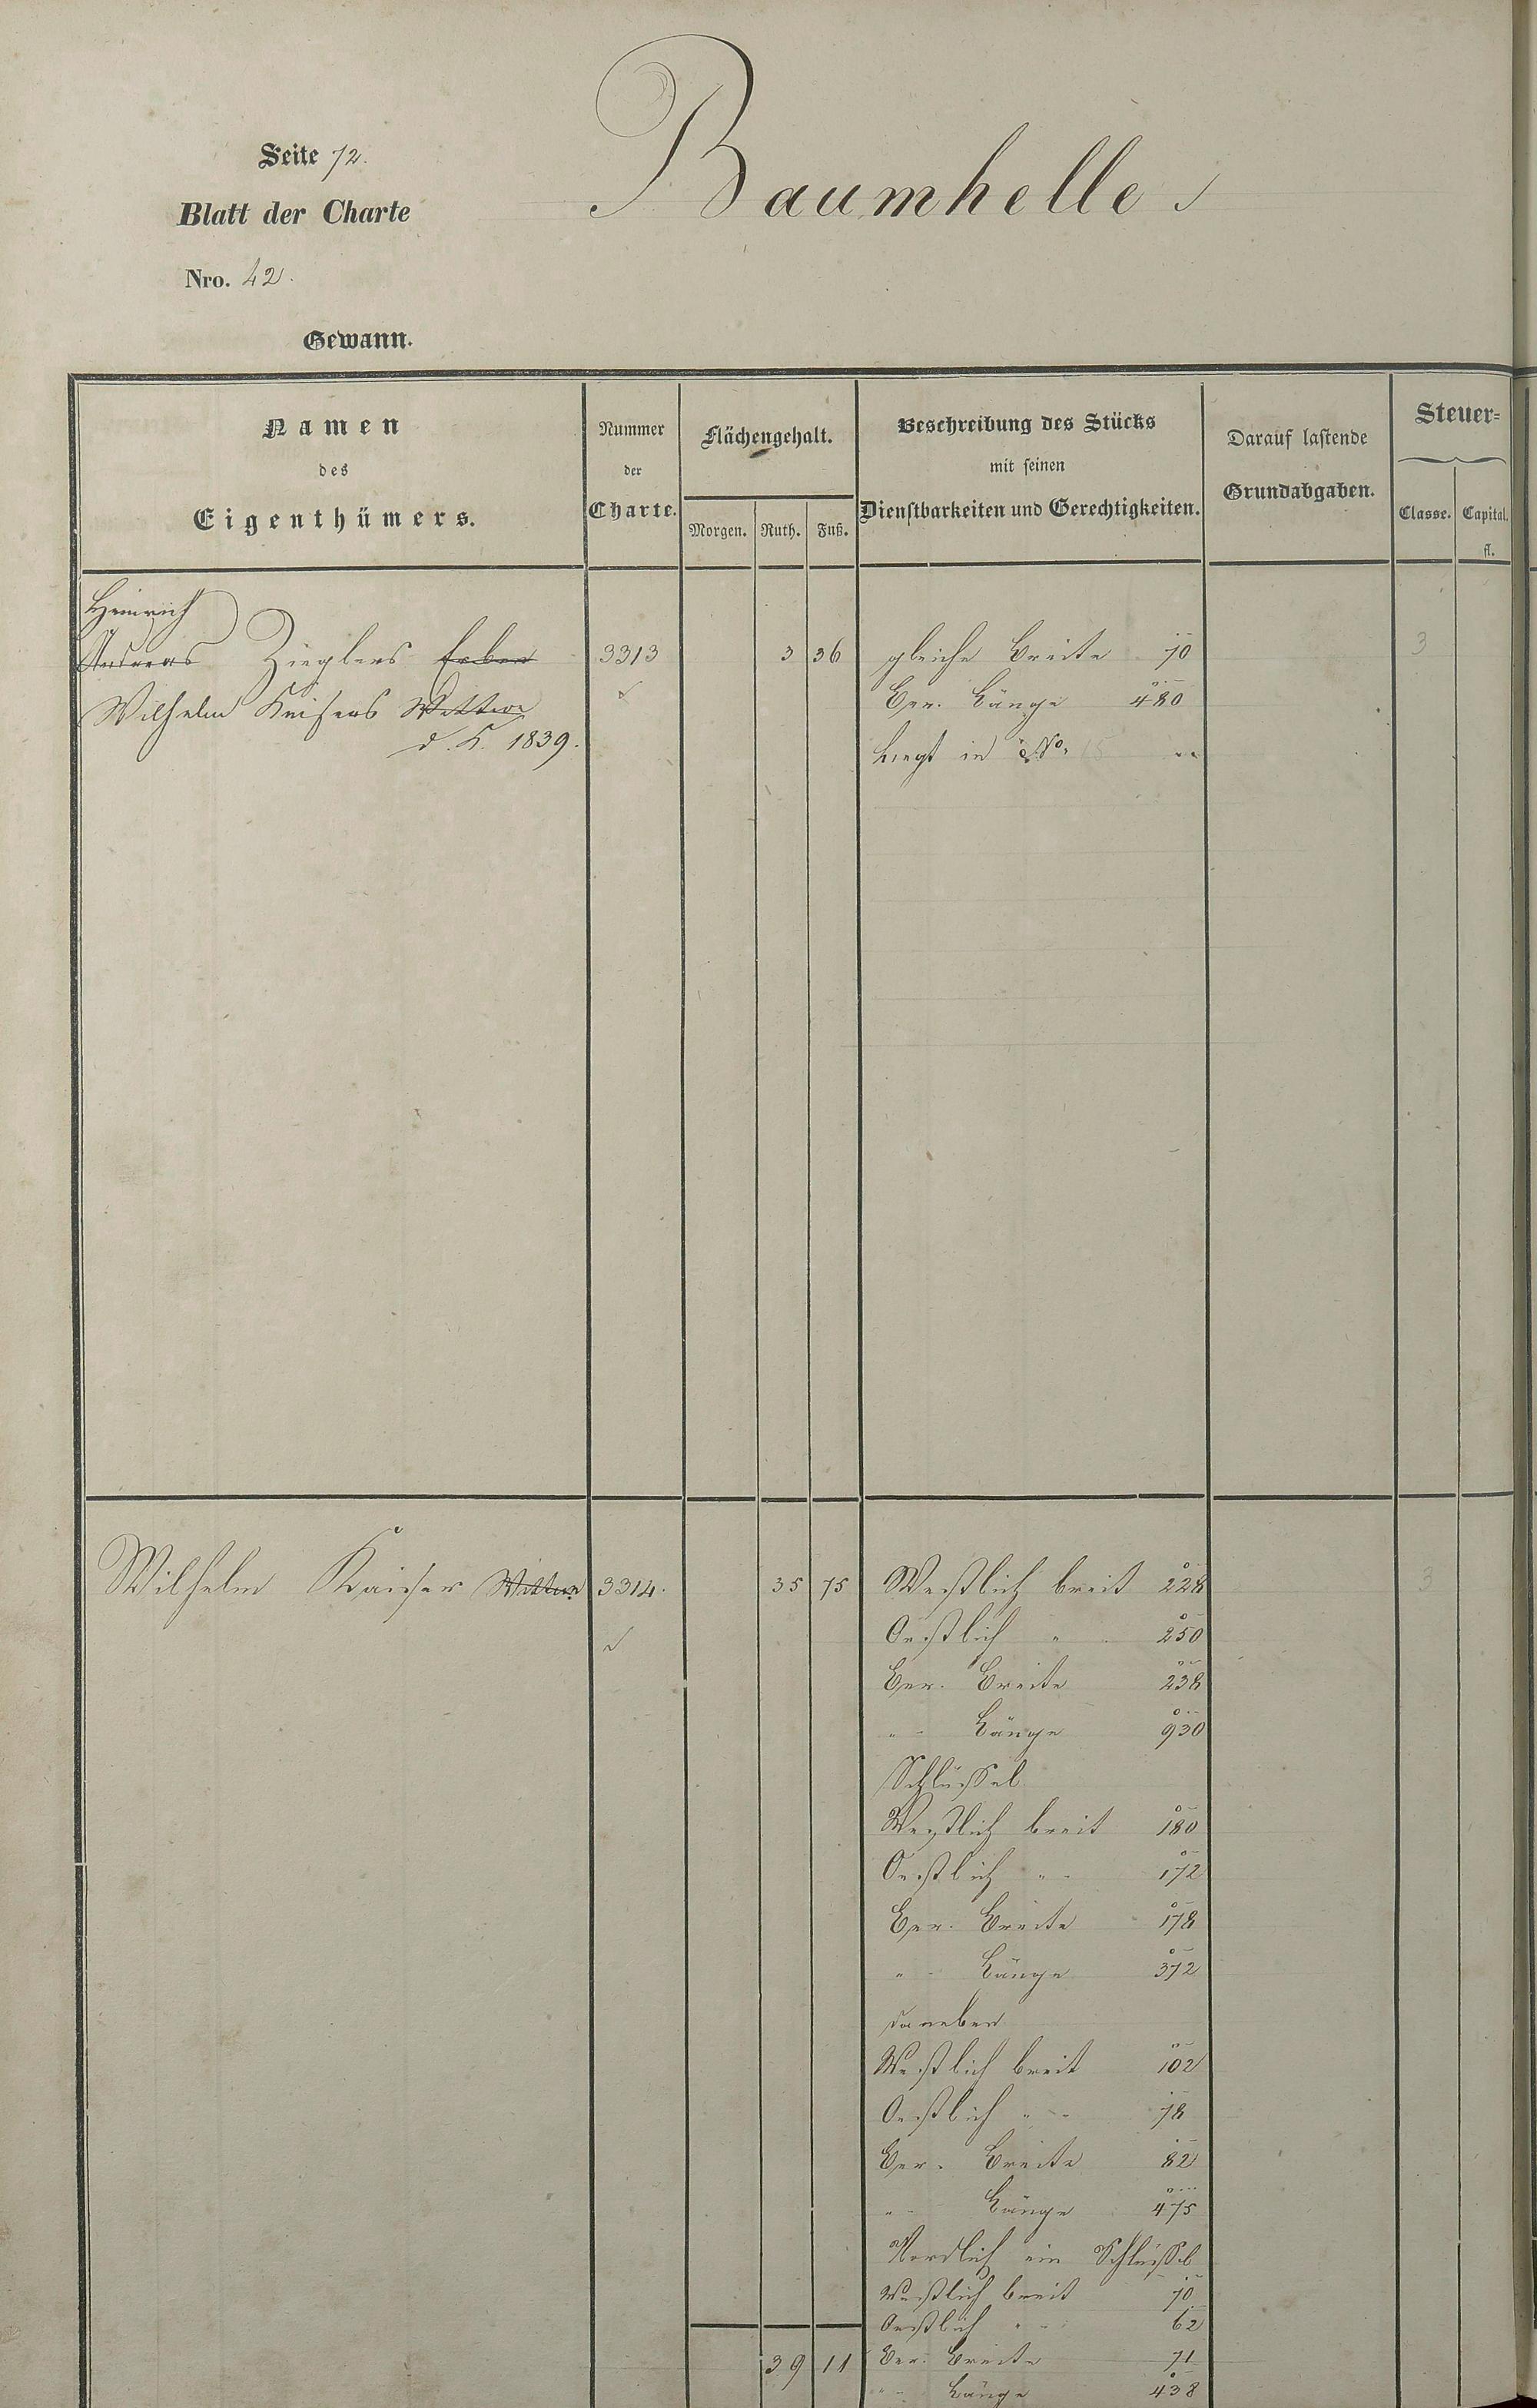 Seite 72.
Baumhelle
Blatt der Charte
Nro. 42.
Gewann.
Namen
des
Eigenthümers.
Nummer
der
Charte.
Flächengehalt.
Morgen. Ruth. Fuß.
Beschreibung des Stücks
mit seinen
Dienstbarkeiten und Gerechtigkeiten.
Darauf lastende
Grundabgaben.
Steuer=
Classe. Capital.
fl.
Heinrich
Andreas Zieglers Erben 3313 3 36 gleiche Breite 70 3
Wilhelm Kaisers Wittwe Ger. Länge 480
d. K. 1839. Liegt in No. 15
Wilhelm Kaiser Wittwe 3314. 35 75 Westlich breit 228 3
Oestlich " 250
Ger. Breite 238
" Länge 930
Schlüssel
Westlich breit 180
Oestlich " 172
Ger. Breite 178
" Länge 372
daneben
Westlich breit 102
Oestlich " 78
Ger. Breite 82
" Länge 475
Nordlich ein Schlüssel
Westlich breit 70
Oestlich " 62
39 11 Ger. Breite 71
" Länge 438